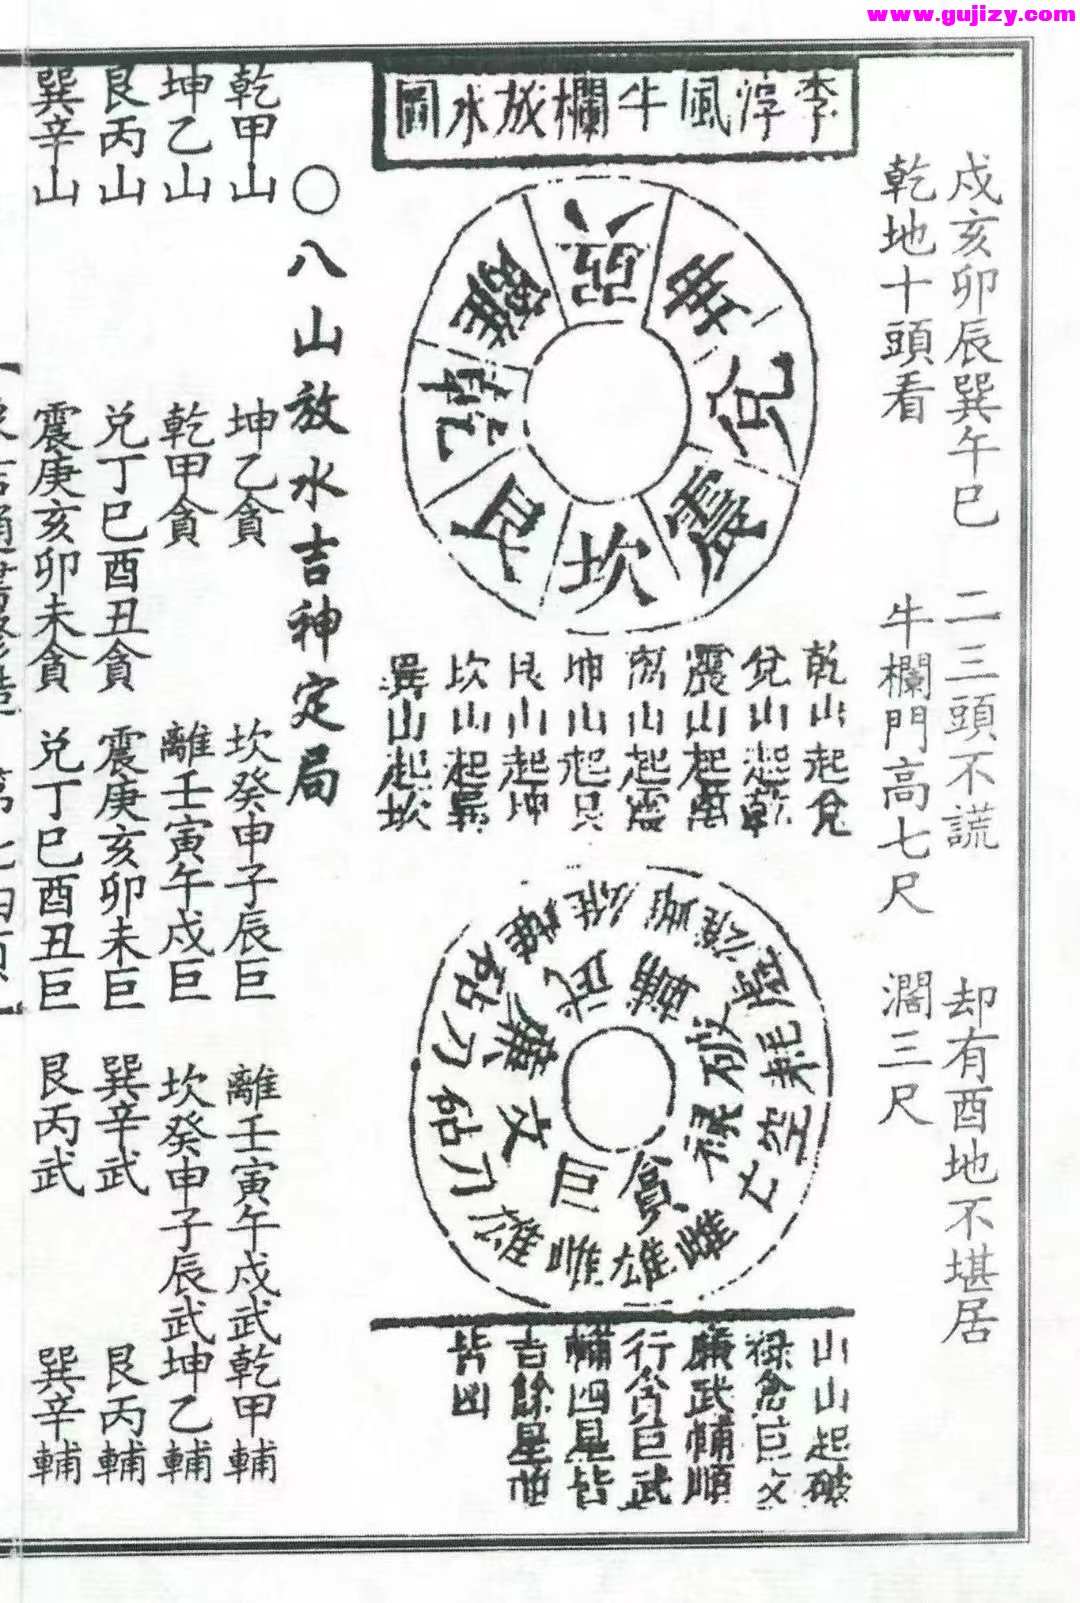 www.gujizy.com
戌亥卯辰巽午巳　二三頭不謊　却有酉地不堪居
乾地十頭看　牛欄門高七尺　濶三尺
李淳風牛欄放水圖
巽
坤
兌
震
坎
艮
乾
離
乾山起兌
兌山起乾
震山起离
离山起震
坤山起艮
艮山起坤
坎山起巽
巽山起坎
輔
破
祿
貪
巨
文
廉
武
耗
空
亡
雌
雄
雌
雄
刀
砧
刀
砧
雌
雄
山山起破
祿貪巨文
廉武輔順
行貪巨武
輔四星皆
吉餘星並
皆凶
○八山放水吉神定局
乾甲山　坤乙貪　坎癸申子辰巨　離壬寅午戌武　乾甲輔
坤乙山　乾甲貪　離壬寅午戌巨　坎癸申子辰武　坤乙輔
艮丙山　兌丁巳酉丑貪　震庚亥卯未巨　巽辛武　艮丙輔
巽辛山　震庚亥卯未貪　兌丁巳酉丑巨　艮丙武　巽辛輔